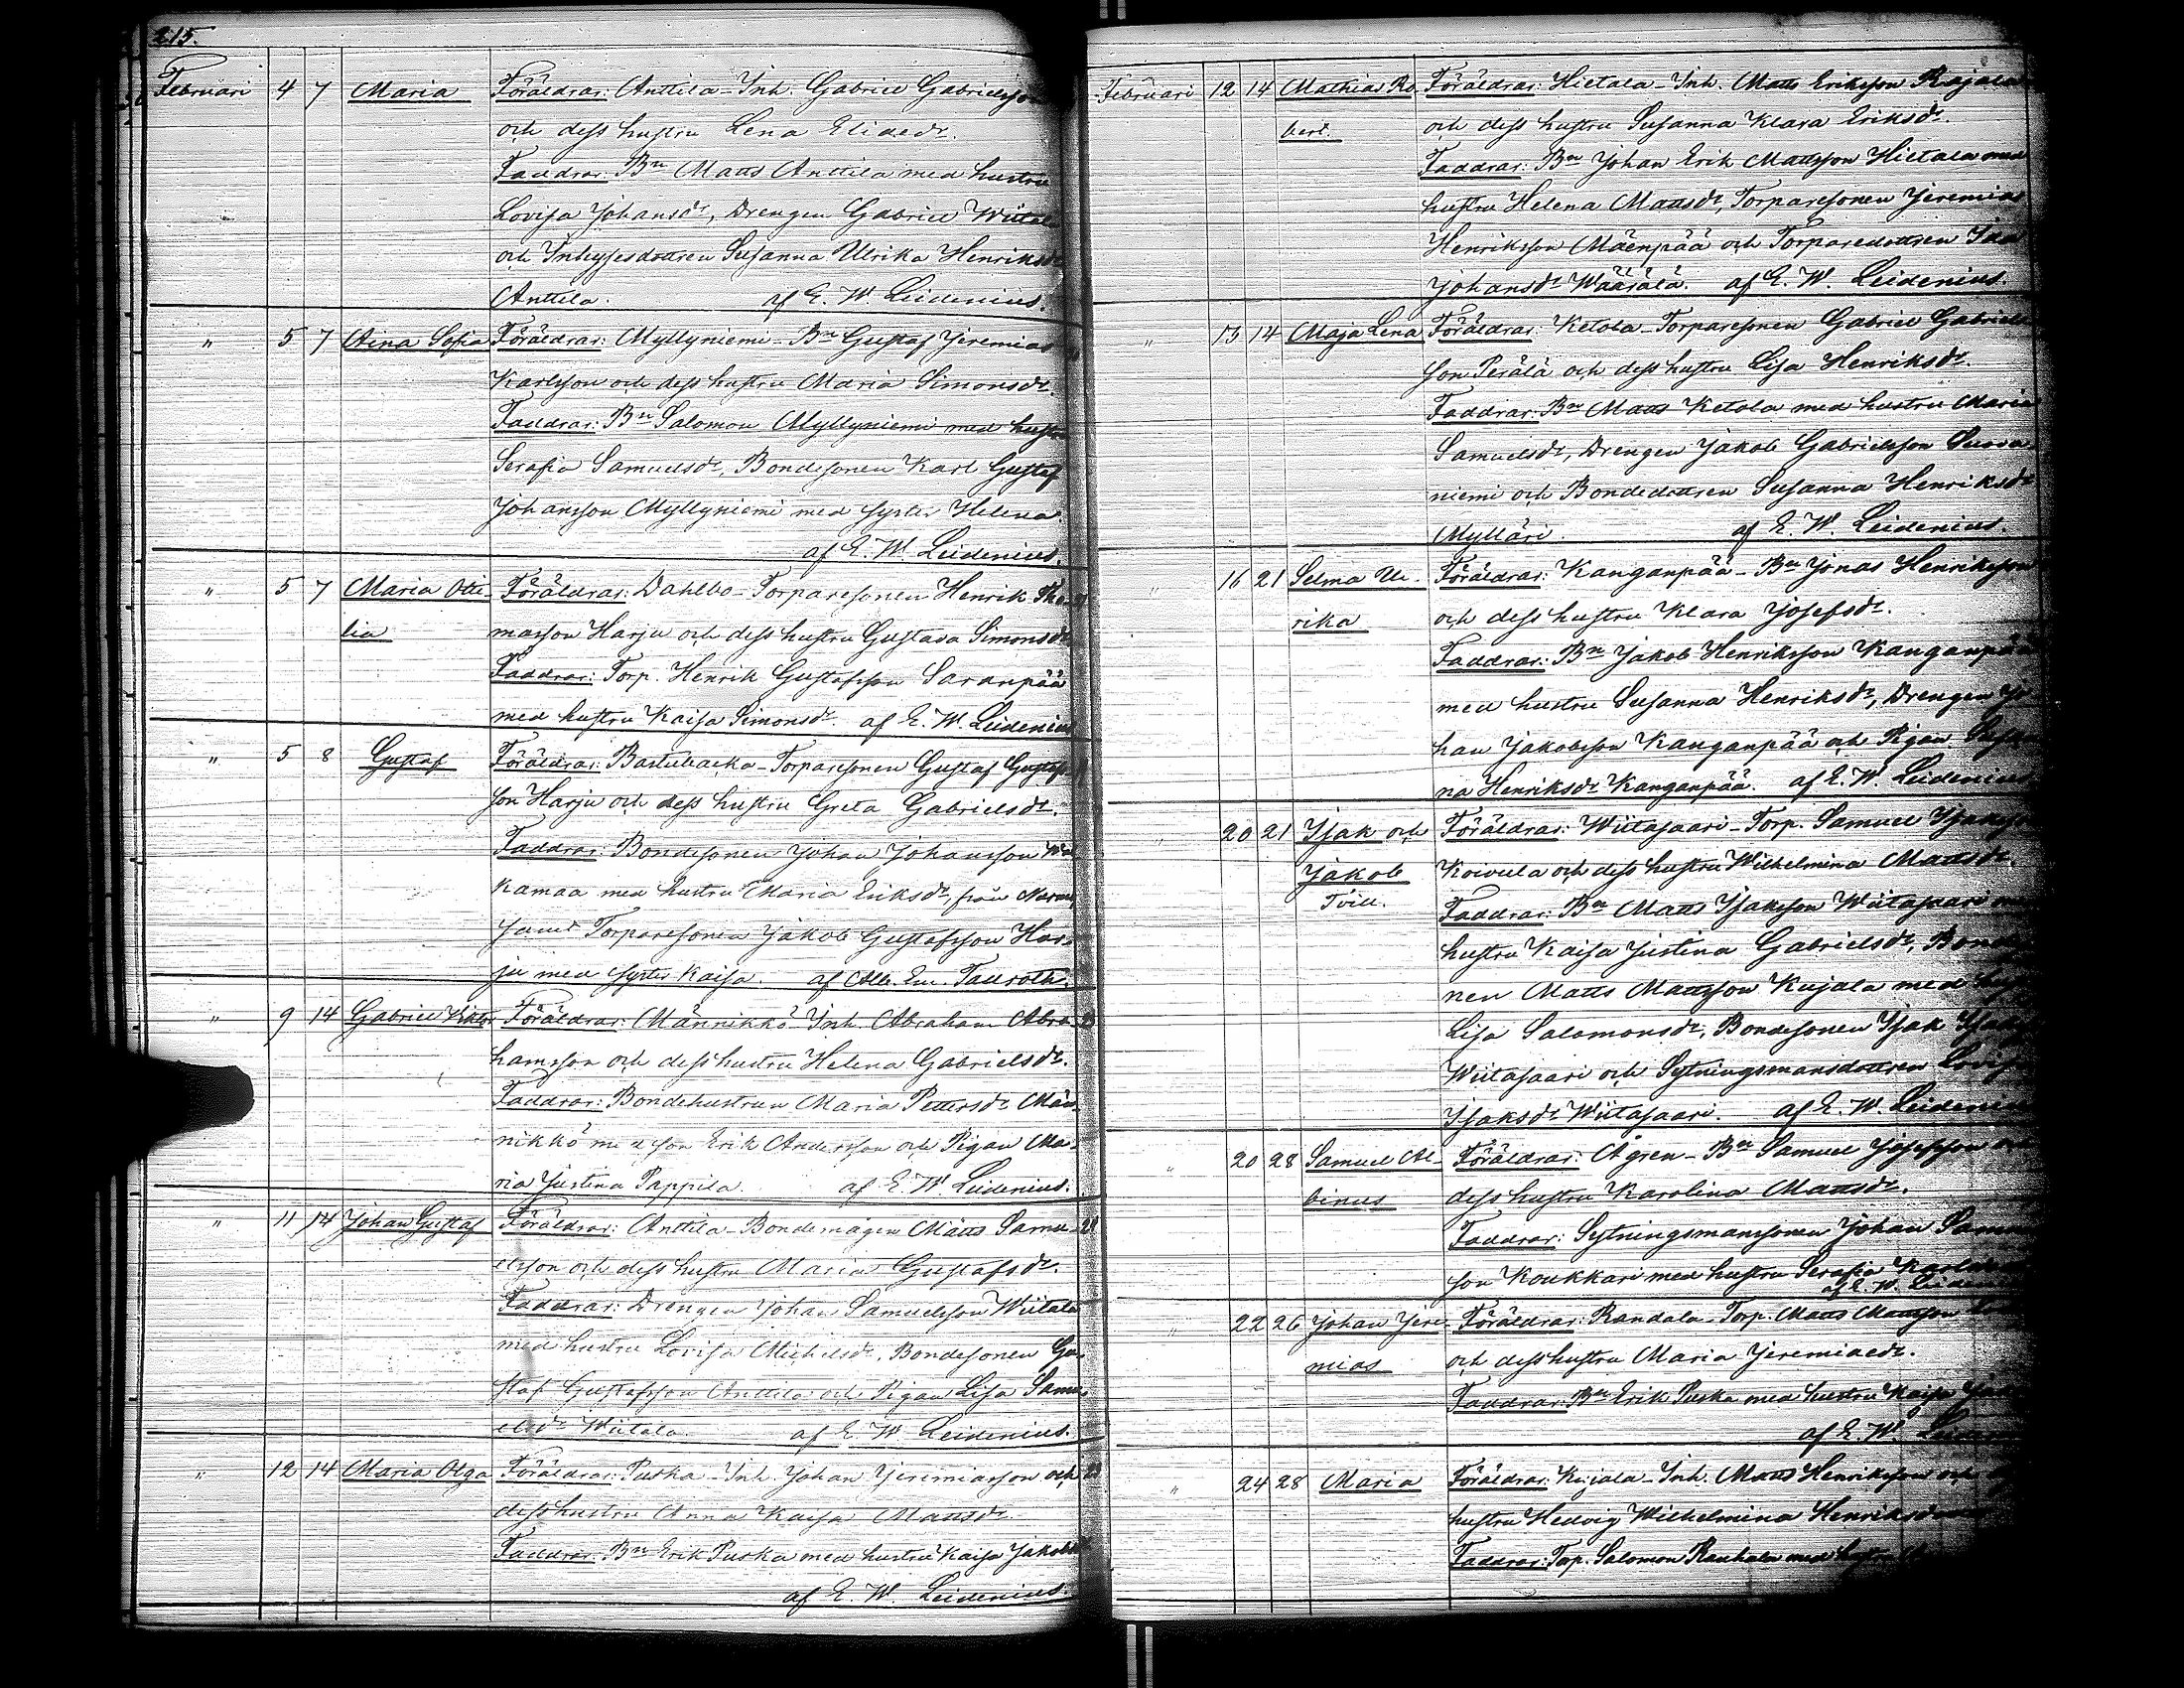 215.
Februari 4 7 Maria Föräldrar: Anttila-Inh. Gabriel Gabrielsson
och dess hustru Lena Eliaedr.
Faddrar: Bn Matts Anttila med hustru
Lovisa Johansdr, Drengen Gabriel Wiitala
och Inhysesdottren Susanna Ulrika Henriksdr
Anttila. af E. W. Leidenius.
" 5 7 Aina Sofia Föräldrar: Myllyniemi-Bn Gustaf Jeremias
Karlsson och dess hustru Maria Simonsdr.
Faddrar: Bn Salomon Myllyniemi med hustru
Serafia Samuelsdr, Bondesonen Karl Gustaf
Johansson Myllyniemi med syster Helena.
af E. W. Leidenius.
" 5 7 Maria Oti- Föräldrar: Dahlbo-Torparesonen Henrik Tho-
lia masson Harju och dess hustru Gustava Simonsdr
Faddrar: Torp. Henrik Gustafsson Saranpää
med hustru Kaisa Simonsdr. af E. W. Leidenius
" 5 8 Gustaf Föräldrar: Bastubacka-Torparesonen Gustaf Gustafs-
son Harju och dess hustru Greta Gabrielsdr.
Faddrar: Bondesonen Johan Johansson
kamaa med hustru Maria Eriksdr, från
samt Torparesonen Jakob Gustafsson Har-
ju med syster Kaisa. af Alb. Em. Tauroth.
" 9 14 Gabriel Viktor Föräldrar: Männikkö-Inh. Abraham Abra-
hamsson och dess hustru Helena Gabrielsdr.
Faddrar: Bondehustrun Maria Pettersdr Män-
nikkö med son Erik Andersson och Pigan Ma-
ria Justina Pappila. af E. W. Leidenius.
" 11 14 Johan Gustaf Föräldrar: Anttila-Bondemågen Matts Samu-
elsson och dess hustru Maria Gustafsdr.
Faddrar: Drengen Johan Samuelsson Wiitala
med hustru Lovisa Michelsdr, Bondesonen Gu-
staf Gustafsson Anttila och Pigan Lisa Samu-
elsdr Wiitala. af E. W. Leidenius.
" 12 14 Maria Olga Föräldrar: Puska-Inh. Johan Jeremiasson och
dess hustru Anna Kaisa Mattsdr
Faddrar: Bn Erik Puska med hustru Kaisa Jakobsdr
af E. W. Leidenius.
Februari 12 14 Mathias Ro- Föräldrar: Hietala-Inh. Matts Eriksson Rajala
bert. och dess hustru Susanna Klara Eriksdr.
Faddrar: Bn Johan Erik Mattsson Hietala med
hustru Helena Mattsdr, Torparesonen Jeremias
Henriksson Mäenpää och Torparedottren Ida
Johansdr Wäärälä. af E. W. Leidenius.
" 13 14 Maja Lena Föräldrar: Ketola-Torparesonen Gabriel Gabriels-
son Perälä och dess hustru Lisa Henriksdr.
Faddrar: Bn Matts Ketola med hustru Maria
Samuelsdr, Drengen Jakob Gabrielsson
niemi och Bondedottren Susanna Henriksdr
Mylläri. af E. W. Leidenius.
" 16 21 Selma Ul- Föräldrar: Kanganpää-Bn Jonas Henriksson
rika och dess hustru Klara Josefsdr.
Faddrar: Bn Jakob Henriksson Kanganpää
med hustru Susanna Henriksdr, Drengen Jo-
han Jakobsson Kanganpää och Pigan Susan-
na Henriksdr Kanganpää. af E. W. Leidenius
" 20 21 Isak och Föräldrar: Wiitasaari-Torp. Samuel Isaksson
Jakob Koivula och dess hustru Wilhelmina Mattsdr.
Tvill. Faddrar: Bn Matts Isaksson Wiitasaari
hustru Kaisa Justina Gabrielsdr,
nen Matts Mattsson Kujala med
Lisa Salomonsdr, Bondesonen Isak
Wiitasaari och Sytningsmansdottren Lovisa
Isaksdr Wiitasaari. af E. W. Leidenius
" 20 28 Samuel Al- Föräldrar: Ågren-Bn Samuel Josefsson och
binus dess hustru Karolina Mattsdr.
Faddrar: Sytningsmanssonen Johan
son Koukkari med hustru Serafia
af E. W. Leidenius
" 22 26 Johan Jere- Föräldrar: Randala-Torp. Matts Mattsson
mias och dess hustru Maria Jeremiaedr.
Faddrar: Bn Erik Puska med hustru Kaisa
af E. W.
" 24 28 Maria Föräldrar: Kujala-Inh. Matts Henriksson och
hustru Hedvig Wilhelmina
Faddrar: Torp. Salomon Rauhala med hustru